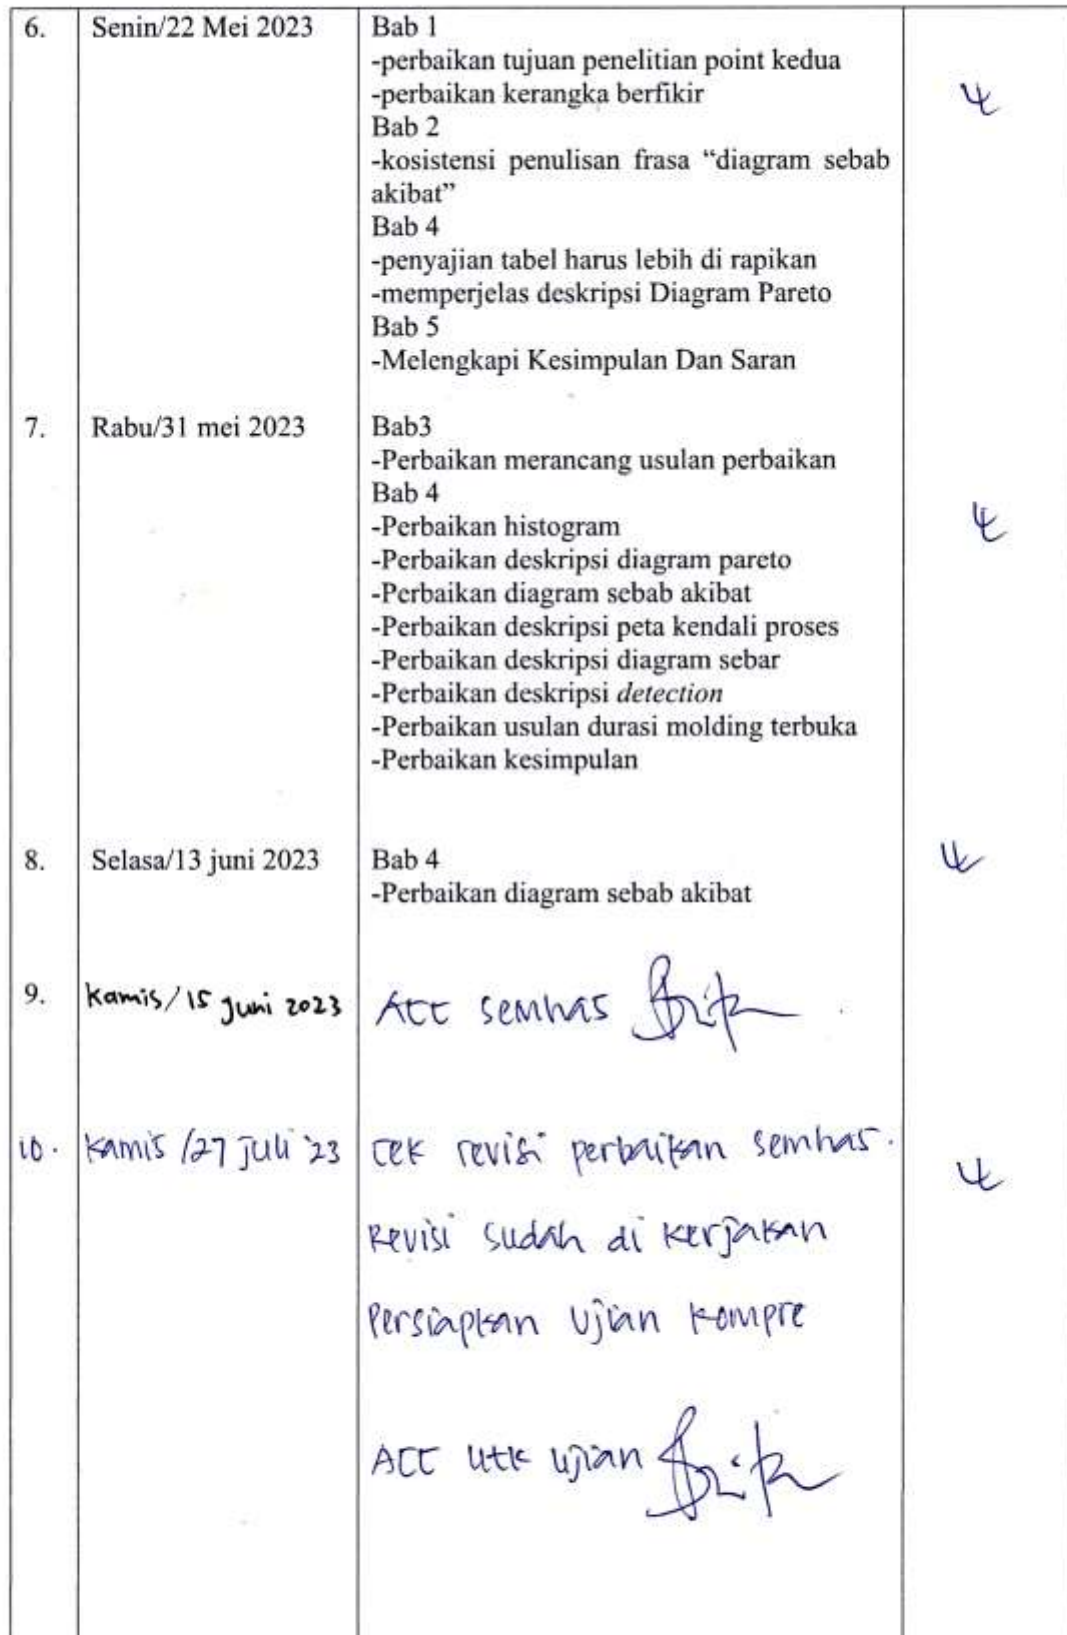 6. Senin/22 Mei 2023 Bab 1
-perbaikan tujuan penelitian point kedua
-perbaikan kerangka berfikir
Bab 2
-kosistensi penulisan frasa “diagram sebab
akibat”
Bab 4
-penyajian tabel harus lebih di rapikan
-memperjelas deskripsi Diagram Pareto
Bab 5
-Melengkapi Kesimpulan Dan Saran
7. Rabu/31 mei 2023 Bab3
-Perbaikan merancang usulan perbaikan
Bab 4
-Perbaikan histogram
-Perbaikan deskripsi diagram pareto
-Perbaikan diagram sebab akibat
-Perbaikan deskripsi peta kendali proses
-Perbaikan deskripsi diagram sebar
-Perbaikan deskripsi detection
-Perbaikan usulan durasi molding terbuka
-Perbaikan kesimpulan
8. Selasa/13 juni 2023 Bab 4
-Perbaikan diagram sebab akibat
9. Kamis/15 Juni 2023 ACC semhas
10. Kamis/27 Juli '23 cek revisi perbaikan semhas.
Revisi sudah di kerjakan
Persiapkan Ujian kompre
ACC utk ujian